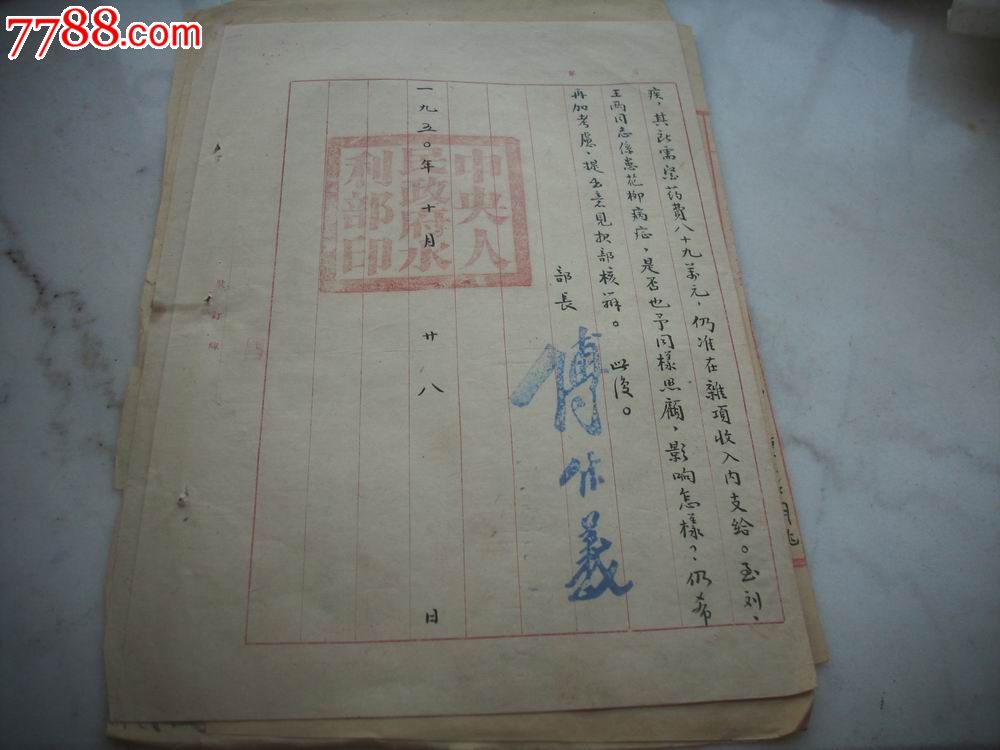 7788.com
疾，其所需医药费八十九萬元，仍准在雜項收入内支给。至刘、
王兩同志係患花柳病症，是否也予同樣照顧，影响怎樣？仍希
再加考慮，提出意見报部核辦。此復。
部长
傅作義
中央人
民政府水
利部印
一九五〇年十月廿八日
訂線